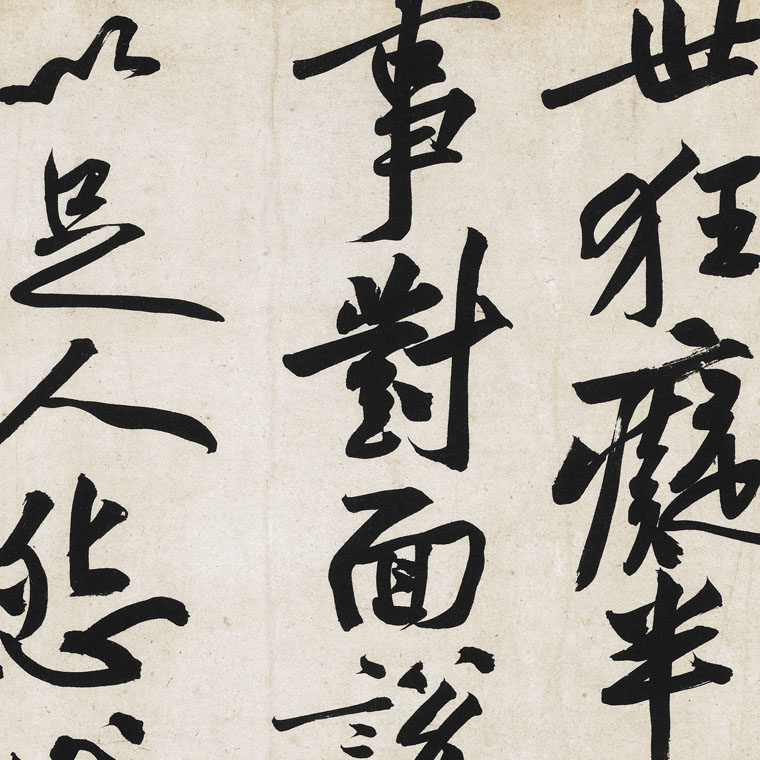 世狂癡半
事對面說
以足人態